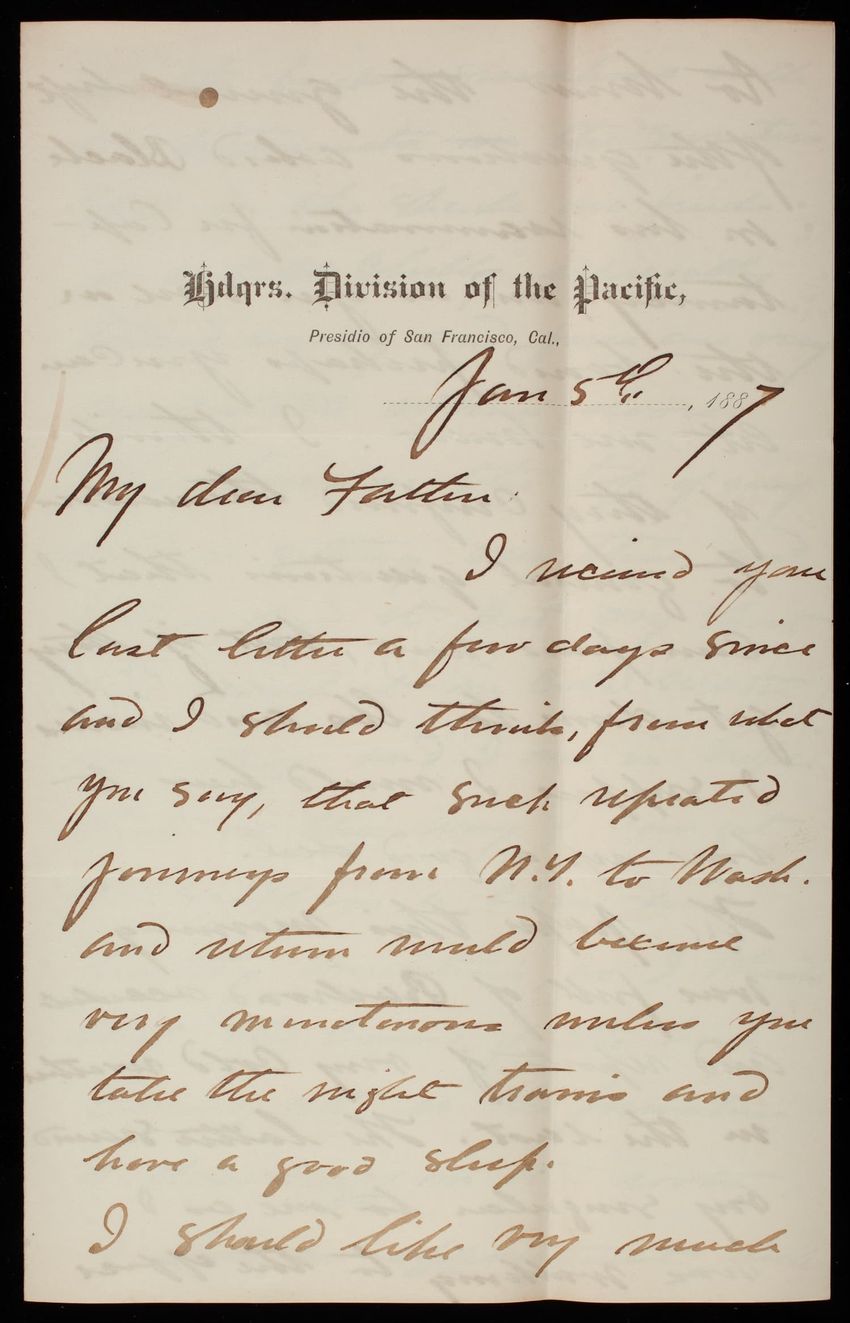 Hdqrs. Division of the Pacific,
Presidio of San Francisco, Cal.,
Jan 5th, 1887
My dear Father:
I received your
last letter a few days since
and I should think, from what
you say, that such repeated
journeys from N.Y. to Wash.
and return would become
very monotonous unless you
take the night trains and
have a good sleep.
I should like very much